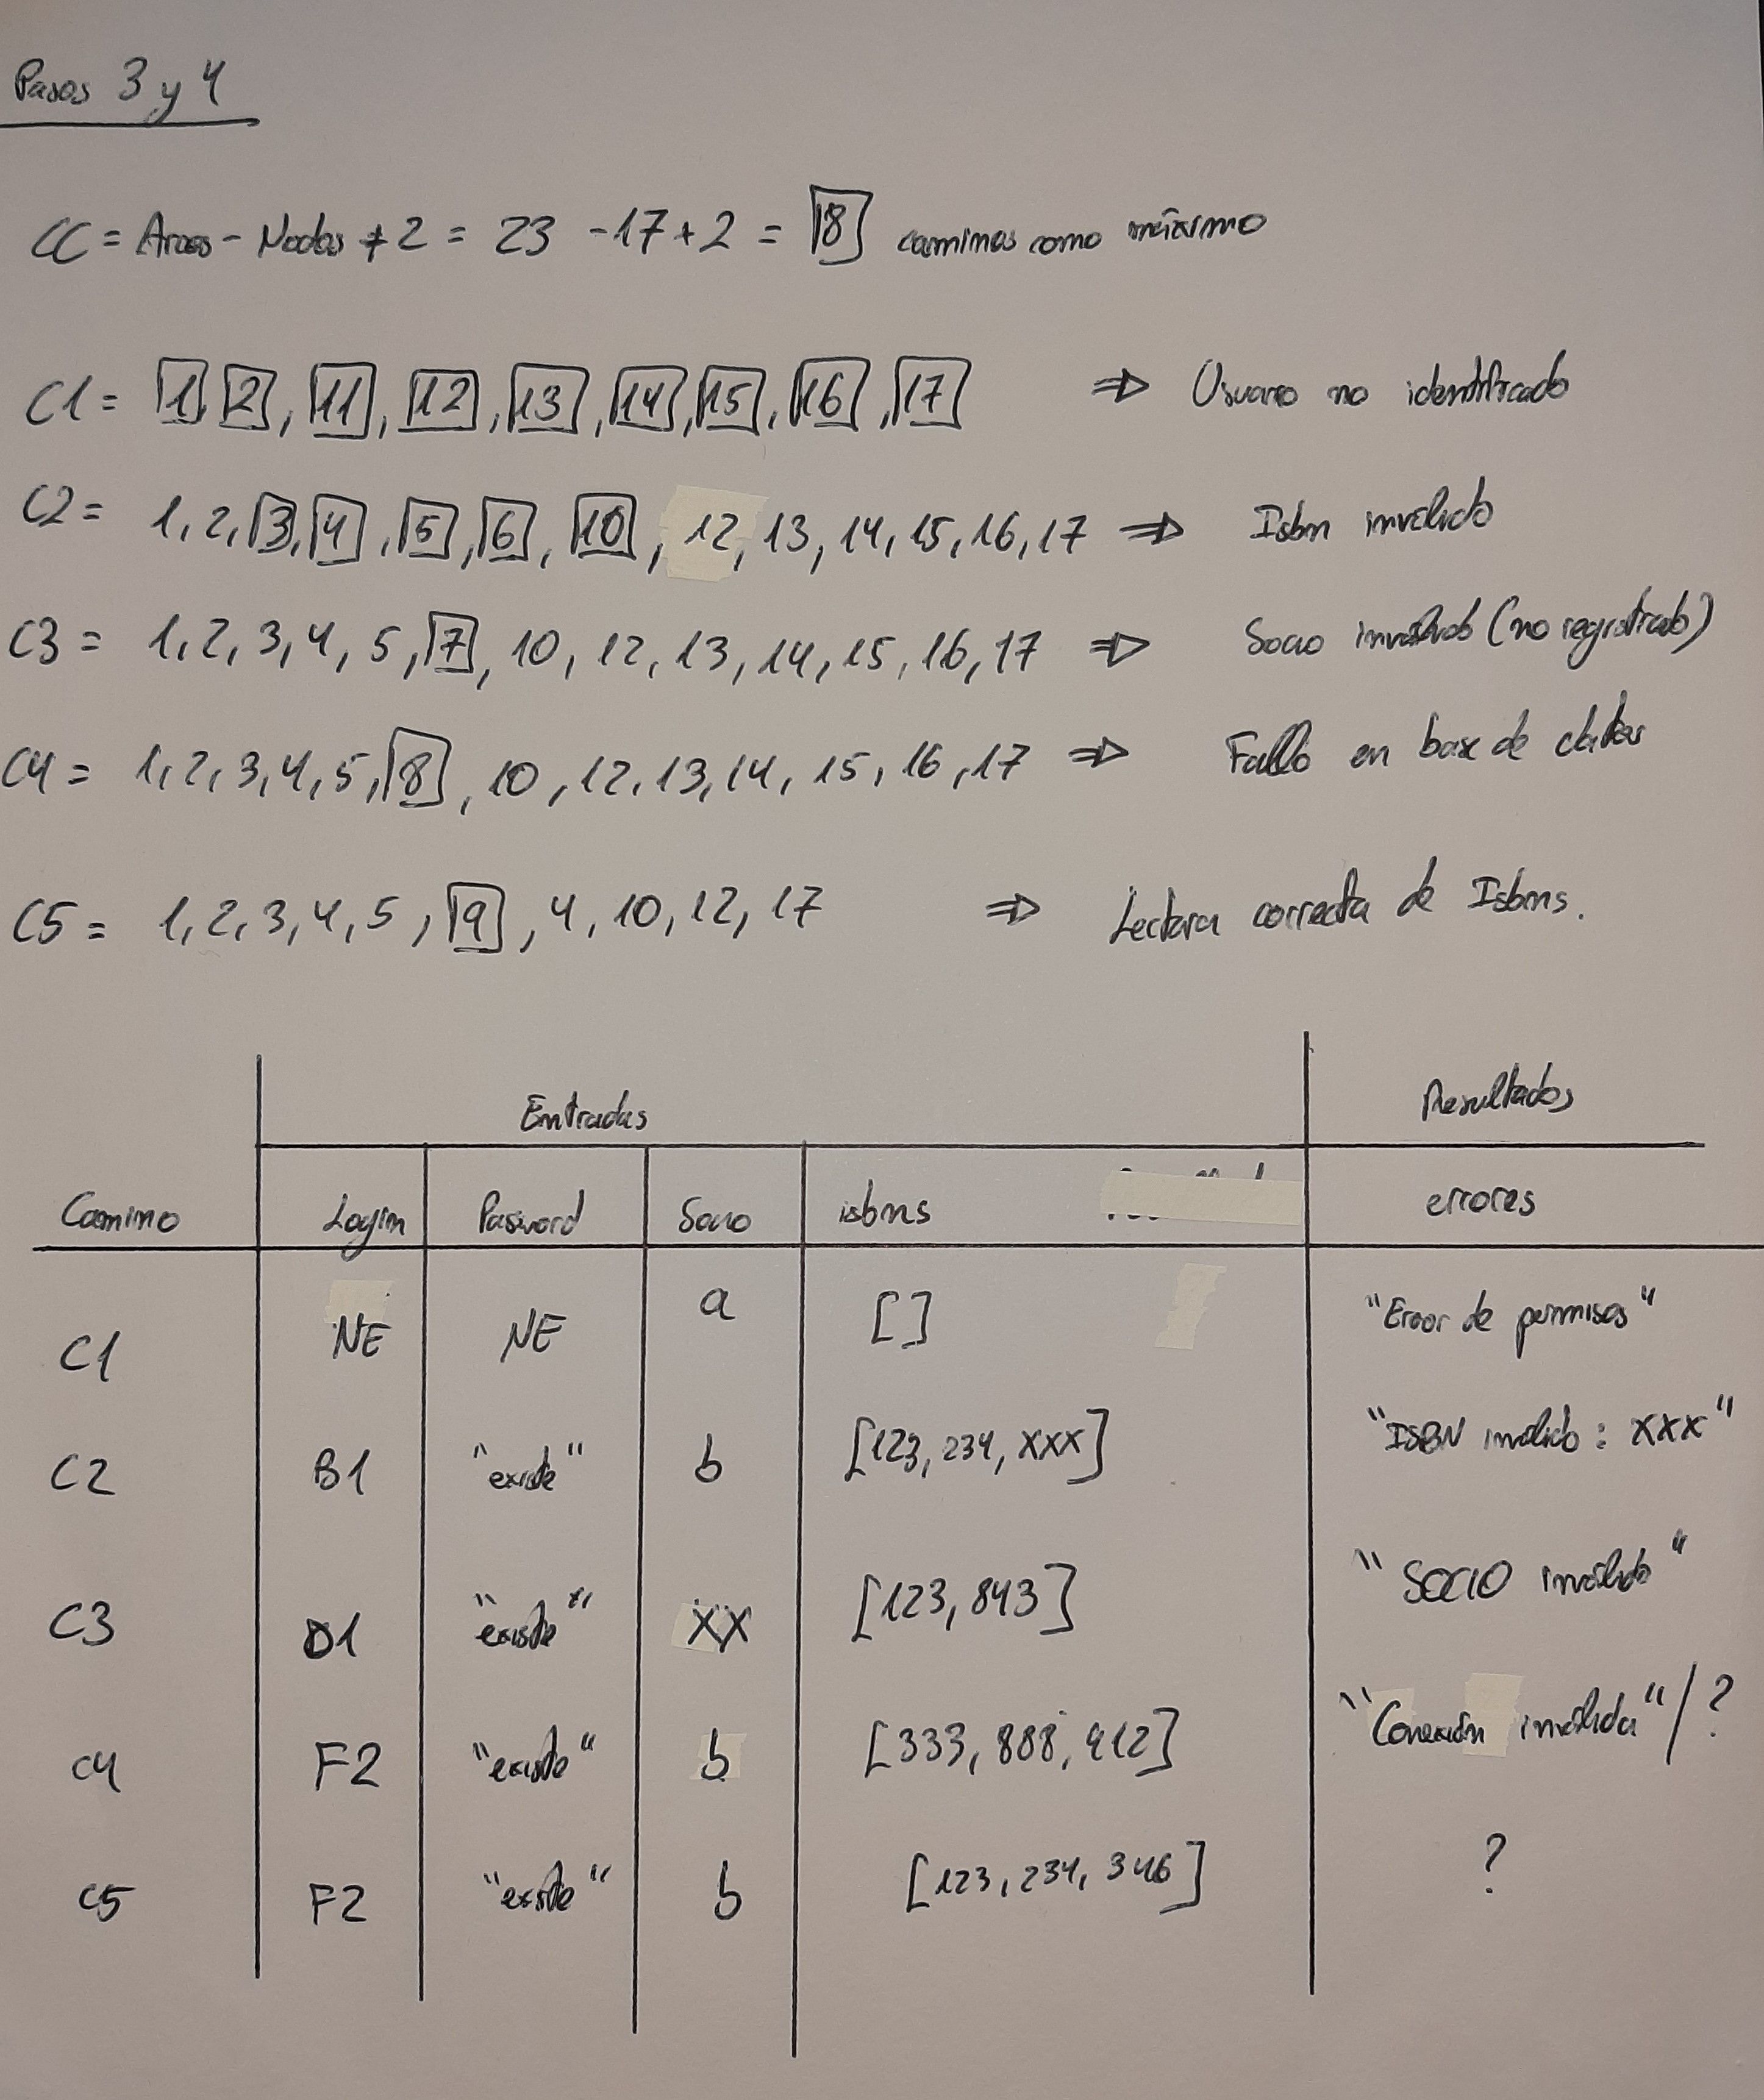 Pasos 3 y 4
CC = Arcos - Nodos + 2 = 23 - 17 + 2 = 8 caminos como máximo
C1 = 1, 2, 11, 12, 13, 14, 15, 16, 17 ⇒ Usuario no identificado
C2 = 1, 2, 3, 4, 5, 6, 10, 12, 13, 14, 15, 16, 17 ⇒ Isbn inválido
C3 = 1, 2, 3, 4, 5, 7, 10, 12, 13, 14, 15, 16, 17 ⇒ Socio inválido (no registrado)
C4 = 1, 2, 3, 4, 5, 8, 10, 12, 13, 14, 15, 16, 17 ⇒ Fallo en base de datos
C5 = 1, 2, 3, 4, 5, 9, 4, 10, 12, 17 ⇒ Lectura correcta de Isbns.
Entradas Resultados
Camino Login Pasword Socio isbns errores
C1 NE NE a [] "Error de permisos"
C2 B1 "existe" b [123, 234, xxx] "ISBN inválido: xxx"
C3 D1 "existe" XX [123, 843] "SOCIO inválido"
C4 F2 "existe" b [333, 888, 912] "Conexión inválida" / ?
C5 F2 "existe" b [123, 234, 346] ?